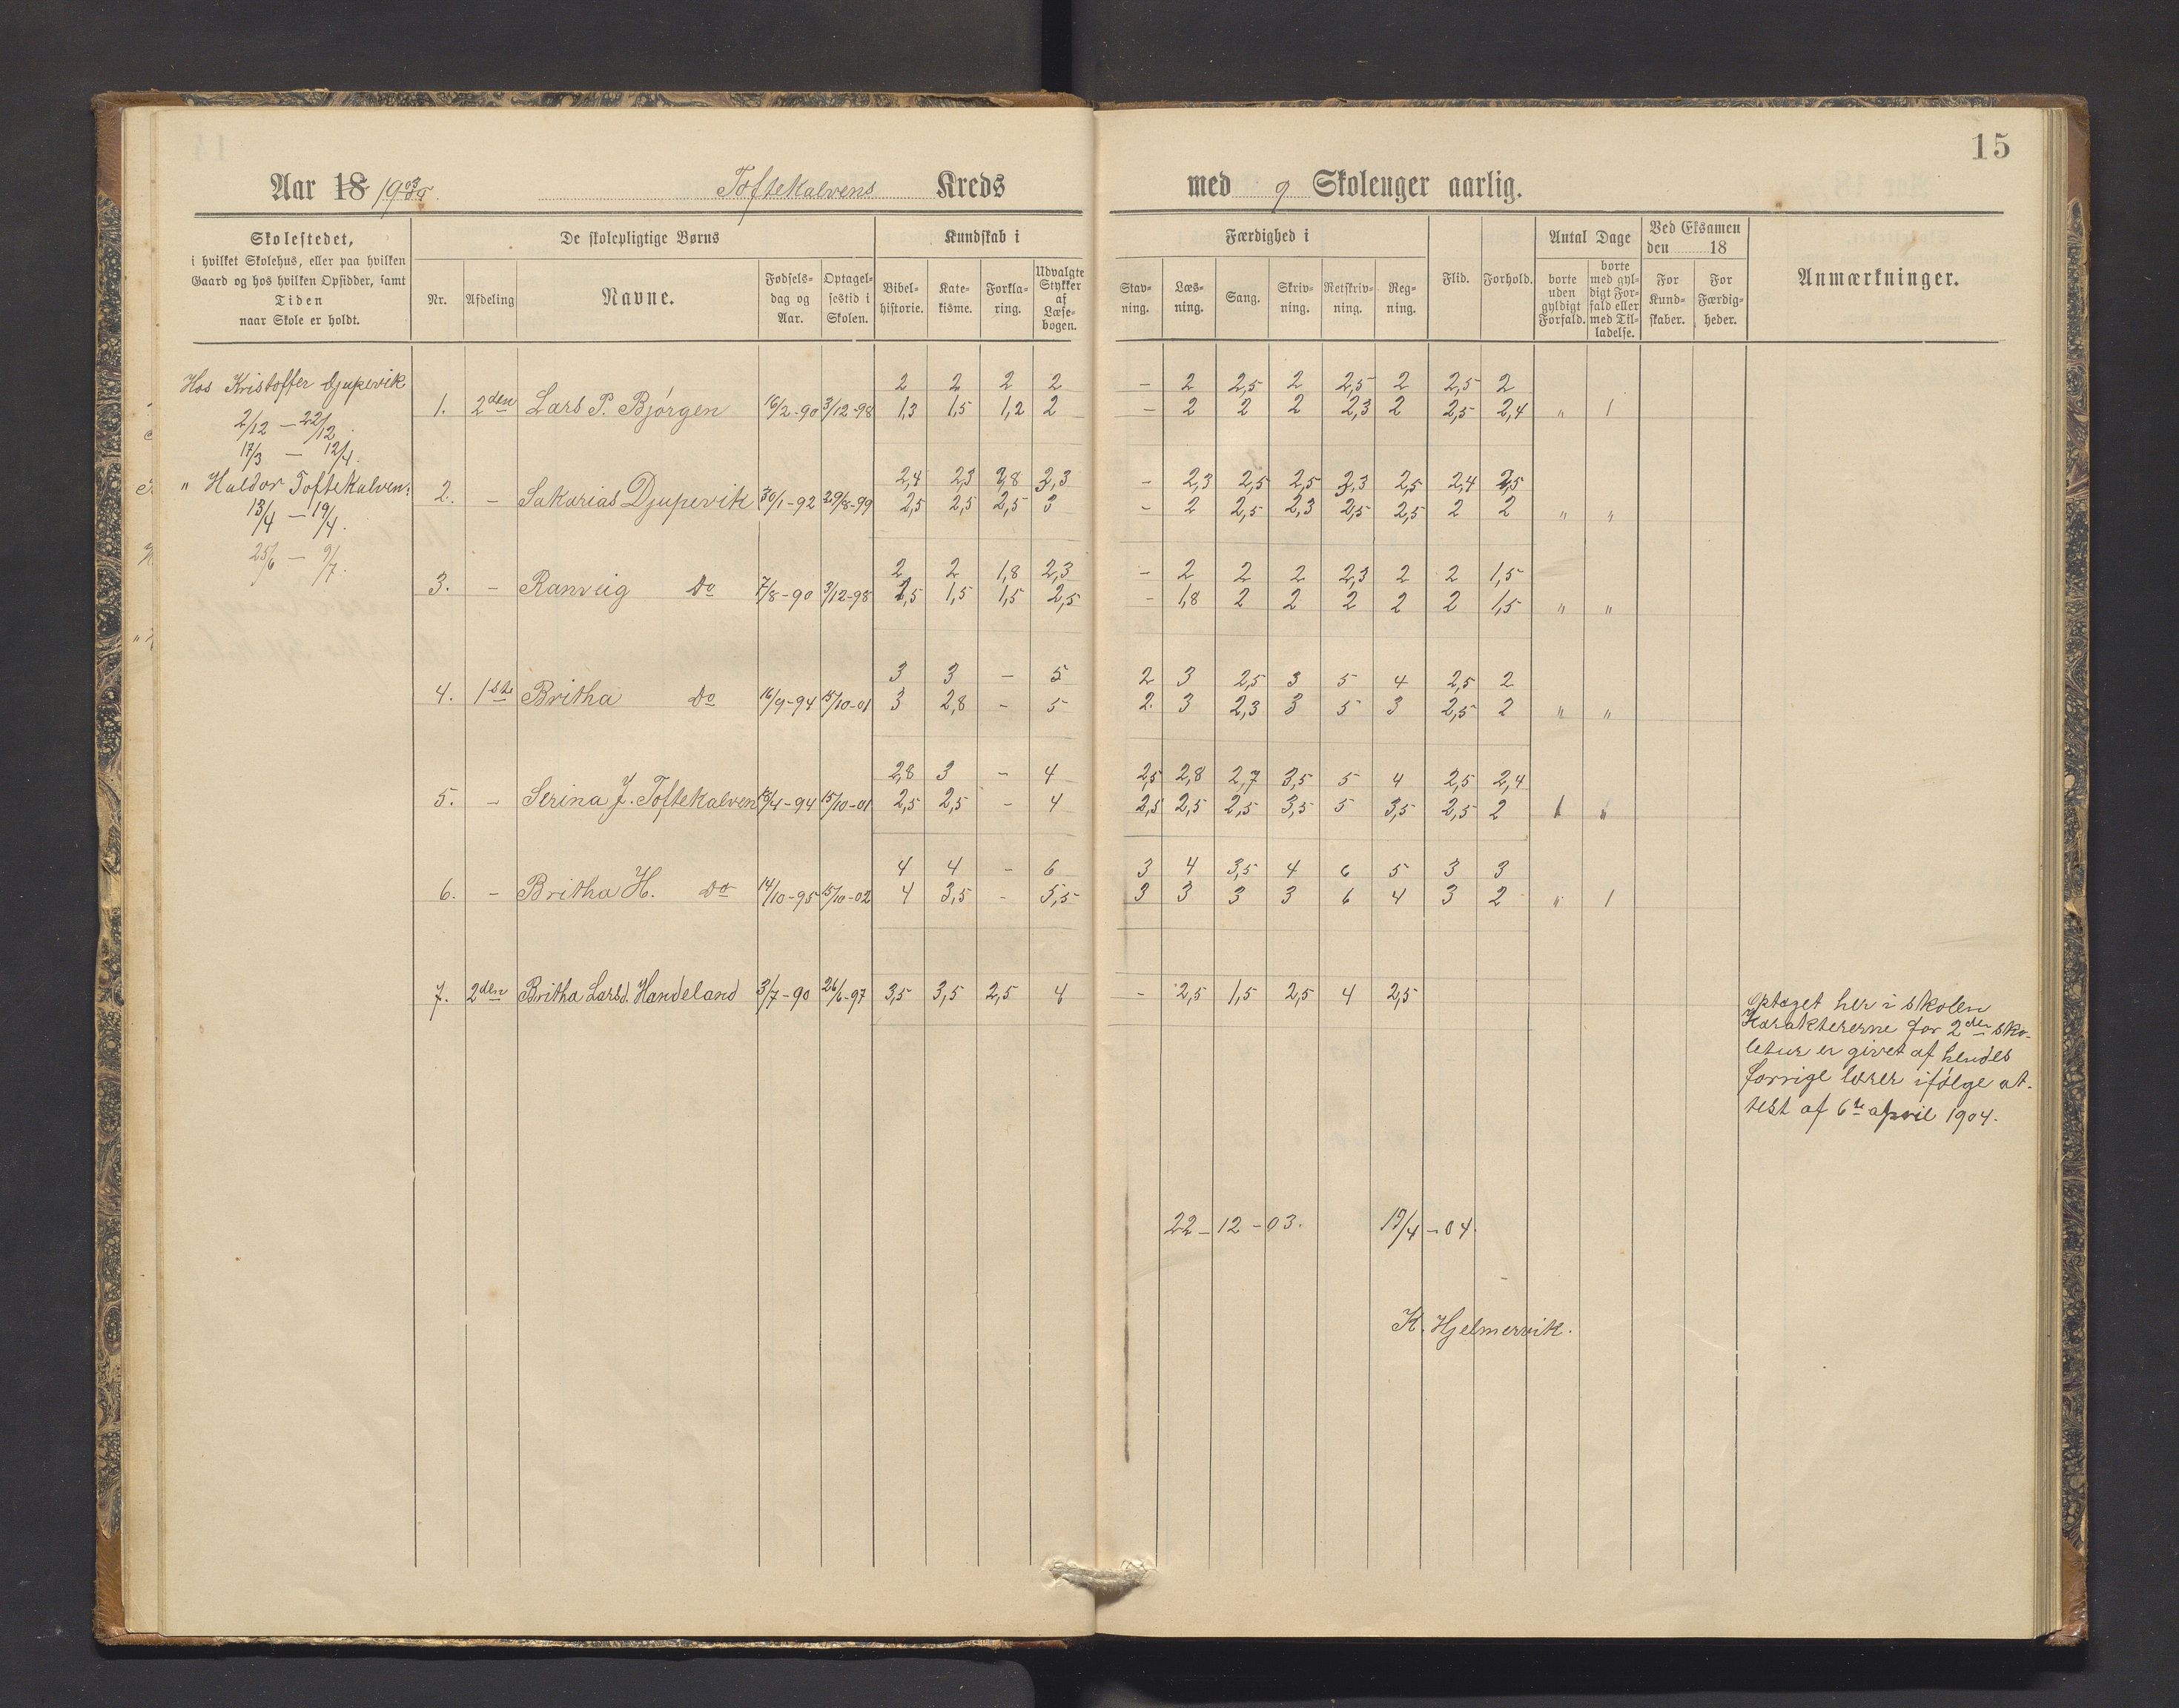 15
Aar 18 1903/04. Toftekalvens Kreds med 9 Skoleuger aarlig.
Skolestedet, i hvilket Skolehus, eller paa hvilken Gaard og hos hvilken Opsidder, samt Tiden naar Skole er holdt.
De skolepligtige Børns
Nr. Afdeling Navne. Fødsels-dag og Aar. Optagel-sestid i Skolen.
Kundskab i
Bibel-historie. Kate-kisme. Forkla-ring. Udvalgte Stykker af Læse-bogen.
Færdighed i
Stav-ning. Læs-ning. Sang. Skriv-ning. Retskriv-ning. Reg-ning.
Flid. Forhold.
Antal Dage
borte uden gyldigt Forfald. borte med gyl-digt For-fald eller med Til-ladelse.
Ved Eksamen den 18
For Kund-skaber. For Færdig-heder.
Anmærkninger.
Hos Kristoffer Djupevik
2/12 – 22/12.
17/3 – 12/4.
" Haldor Toftekalven:
13/4 – 19/4.
25/6 – 9/7.
2 2 2 2 – 2 2,5 2 2,5 2 2,5 2
1. 2den Lars P. Bjørgen 16/2-90 3/12-98 1,3 1,5 1,2 2 – 2 2 2 2,3 2 2,5 2,4 " 1
2,4 2,3 2,8 2,3 – 2,3 2,5 2,5 2,3 2,5 2,4 2,5
2. – Sakarias Djupevik 30/1-92 29/8-99 2,5 2,5 2,5 3 – 2 2,5 2,3 2,5 2,5 2 2 " "
2 2 1,8 2,3 – 2 2 2 2,3 2 2 1,5
3. – Ranveig Do 7/8-90 3/12-98 1,5 1,5 1,5 2,5 – 1,8 2 2 2 2 2 1,5 " "
3 3 – 5 2 3 2,5 3 5 4 2,5 2
4. 1ste Britha Do 16/9-94 15/10-01 3 2,8 – 5 2 3 2,3 3 5 3 2,5 2 " "
2,8 3 – 4 2,5 2,8 2,7 3,5 5 4 2,5 2,4
5. – Serina J. Toftekalven 18/4-94 15/10-01 2,5 2,5 – 4 2,5 2,5 2,5 3,5 5 3,5 2,5 2 1 "
4 4 – 6 3 4 3,5 4 6 5 3 3
6. – Britha H. Do 14/10-95 15/10-02 4 3,5 – 5,5 3 3 3 3 6 4 3 2 " 1
7. 2den Britha Larsd. Handeland 3/7-90 26/6-97 3,5 3,5 2,5 4 – 2,5 1,5 2,5 4 2,5
Optaget her i skolen
Karaktererne for 2den sko-
letur er givet af hendes
forrige lærer ifølge at-
test af 6te april 1904.
22-12-03. 19/4-04.
K. Hjelmervik.